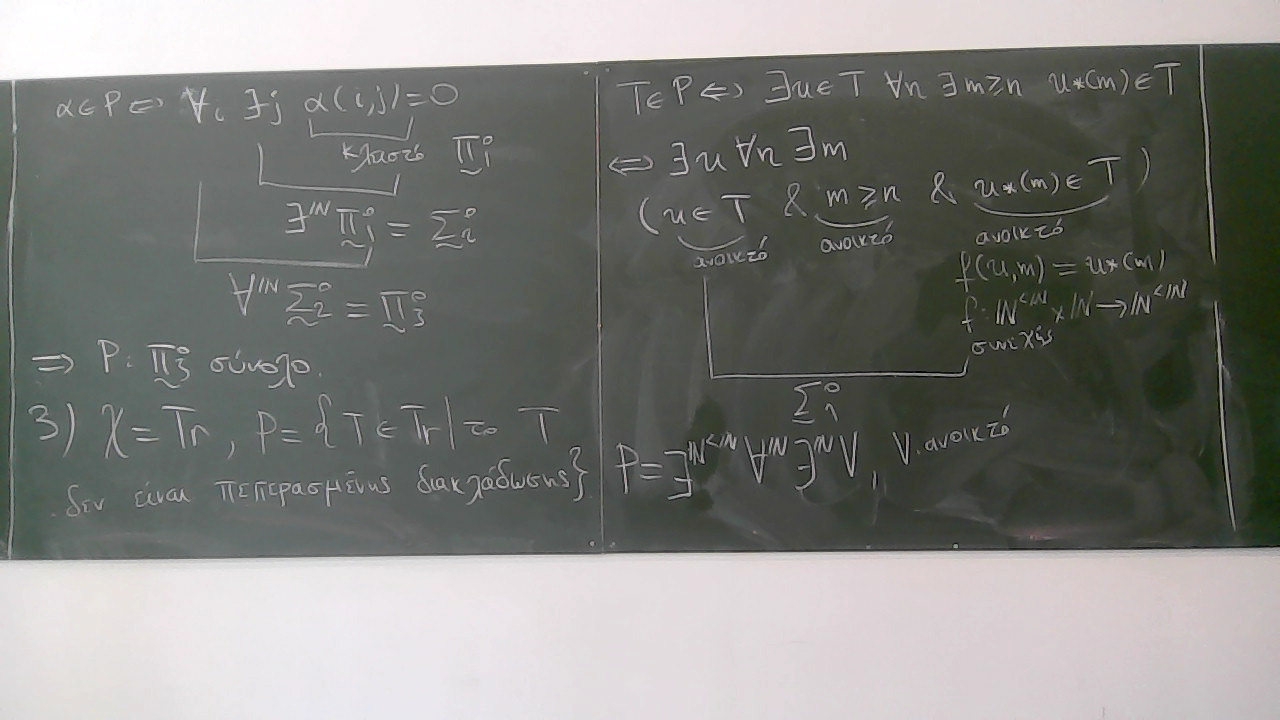 α∈P ⇔ ∀i ∃j α(i,j)=0
κλειστό Π⁰₁
∃^ℕ Π⁰₁ = Σ⁰₂
∀^ℕ Σ⁰₂ = Π⁰₃
⇒ P: Π⁰₃ σύνολο.
3) χ = Tr, P = {T ∈ Tr | το T
δεν είναι πεπερασμένης διακλάδωσης}
T∈P ⇔ ∃u∈T ∀n ∃m≥n u*(m)∈T
⇔ ∃u ∀n ∃m
(u∈T & m≥n & u*(m)∈T)
ανοικτό ανοικτό ανοικτό
f(u,m) = u*(m)
f: ℕ^{<ℕ} × ℕ → ℕ^{<ℕ}
συνεχής
Σ⁰₁
P = ∃^{ℕ^{<ℕ}} ∀^ℕ ∃^ℕ V, V: ανοικτό